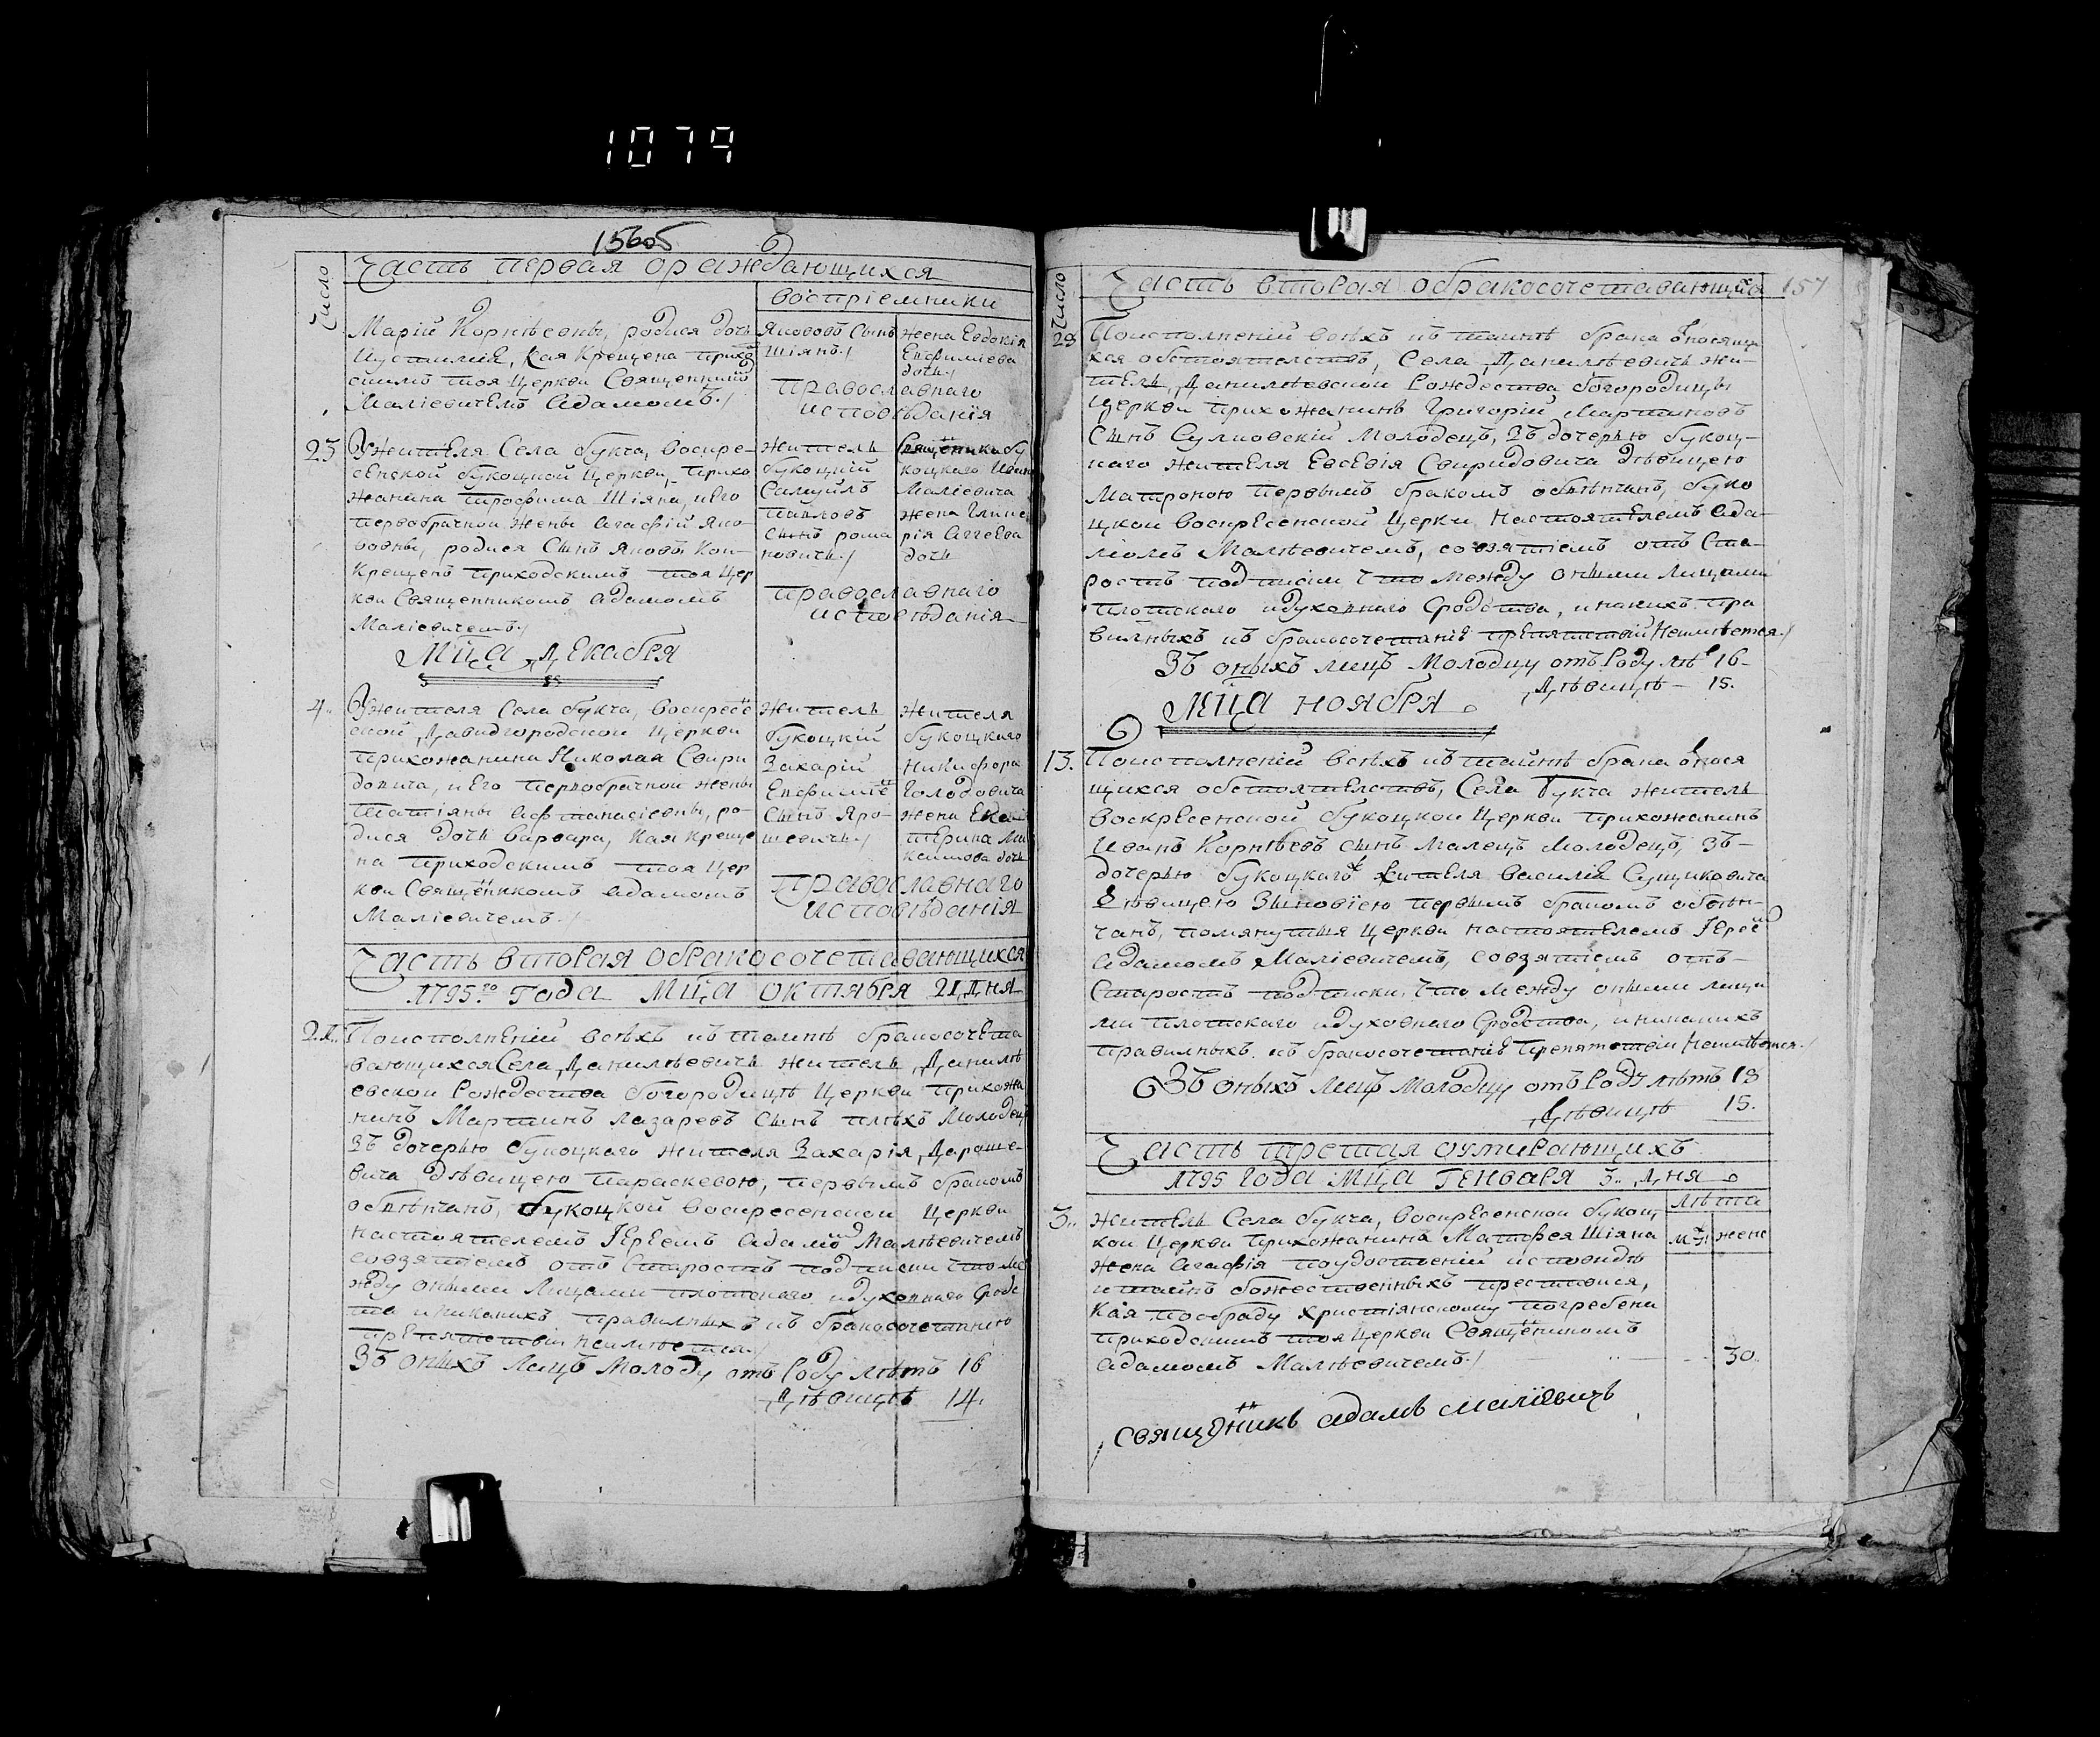 1079
156об
Число
Часть первая ораждающихся
воспріемники
Марій Корнѣевны, родися дочь
Іустиніа, кая крещена прихо
скимъ тоя Церкви Священникомъ
Маліевичемъ Адамомъ./
Яковъ Сынъ
Шіянъ./
жена Евдокія
Евфиміева
дочь./
православнаго
исповѣданія
25
Ужителя Села букча, воскре-
сенской букоцкой Церкви, прихо
жанина Трофима Шіяна, иего
первобрачной жены Агафій Яко-
вовны, родися Сынъ Яковъ кои
крещенъ приходскимъ тоя Цер
кви Священникомъ адамомъ
Маліевичемъ./
житель
букоцкій
Самуилъ
павловъ
Сынъ рома
новичъ./
Священника бу
коцкаго Іоанна
Маліевича
жена Глике
рія Аггеева
дочь
православнаго
исповѣданія
Мца Декабря
4..
Ужителя Села букча, воскресен
ской Давидгородской Церкви
прихожанина Николая Свири
довича, иего первобрачной жены
Татіяны Афанасіевны, ро-
дися дочь варвара, кая креще
на приходскимъ тоя Цер
кви Священникомъ адамомъ
Маліевичемъ./
житель
букоцкій
Захарій
Евфиміевъ
Сынъ Яро-
шевичъ./
жителя
букоцкаго
Никифора
Голодовича
жена Ека
терина Ма
ксимова дочь
православнаго
исповѣданія
Часть вторая обракосочетавающихся
1795го года Мца октября 21 дня
21..
Поисполненій всѣхъ къ таинѣ бракосочета
вающихся Села Данилѣевичъ житель, Данилѣ
евской Рождества богородицы Церкви прихожа
нинъ Мартинъ Лазаревъ Сынъ Молодецъ
Зъ дочерью букоцкаго жителя Захарія Дароше-
вича дѣвицею параскевою, первымъ бракомъ
обвѣнчанъ, букоцкой воскресенской Церкви
настоятелемъ Іереемъ Адамомъ Малѣевичемъ
совзятіемъ отъ Старостъ подписки что ме
жду оными Лицами плотскаго идуховнаго Сродс
тва иникакихъ правилныхъ къ бракосочетанію
препятствій неимѣется./
Зъ оныхъ Лицъ Молодцу отъ Роду лѣтъ 16
Дѣвицѣ 14.
Число
Часть вторая обракосочетавающихся
157
29
Поисполненій всѣхъ къ таинѣ брака относящи
хся обстоятелствъ, Села Данилѣевичъ жи-
тель, Данилѣевской Рождества богородицы
Церкви прихожанинъ Григорій Мартиновъ
Сынъ Сулковскій Молодецъ, Зъ дочерью букоц-
каго жителя Евсевія Свиридовича дѣвицею
Матроною первымъ бракомъ обвѣнчанъ, буко
цкой воскресенской Церкви настоятелемъ Ада-
момъ Малѣевичемъ, совзятіемъ отъ Ста-
ростъ подписки что между оными Лицами
плотскаго идуховнаго Сродства, иникакихъ пра
вилныхъ къ бракосочетанію препятствій неимѣется./
Зъ оныхъ лицъ Молодцу отъ Роду лѣ 16-
Дѣвицѣ - 15.
Мца ноября
13.
Поисполненій всѣхъ къ таинѣ брака относя
щихся обстоятелствъ, Села букча житель
воскресенской букоцкой Церкви прихожанинъ
Иванъ Корнѣевъ сынъ Малецъ Молодецъ, Зъ-
дочерью букоцкаго жителя василія Сущиковича
Дѣвицею Зѣновіею первымъ бракомъ обвѣн-
чанъ, помянутыя Церкви настоятелемъ Іереемъ
Адамомъ Маліевичемъ, совзятіемъ отъ-
Старостъ подписки, что между оными лица
ми плотскаго идуховнаго Сродства, иникакихъ
правилныхъ къ бракосочетанію препятствій неимѣется./
Зъ оныхъ Лицъ Молодцу отъ Роду лѣтъ 18
Дѣвицѣ 15.
Часть третая оумирающихъ
1795 года Мца Генваря 3.. Дня
Лѣта
муж
жене
3..
Житель Села букча, воскресенской букоц
кой Церкви прихожанина Матфея Шіяна
жена Агафія поудостоеній исповиди
и таинъ божественныхъ преставися,
кая пообраду христіянскому погребена
приходскимъ тоя Церкви Священникомъ
адамомъ Малѣевичемъ./
30.
священникъ адамъ маліевичъ